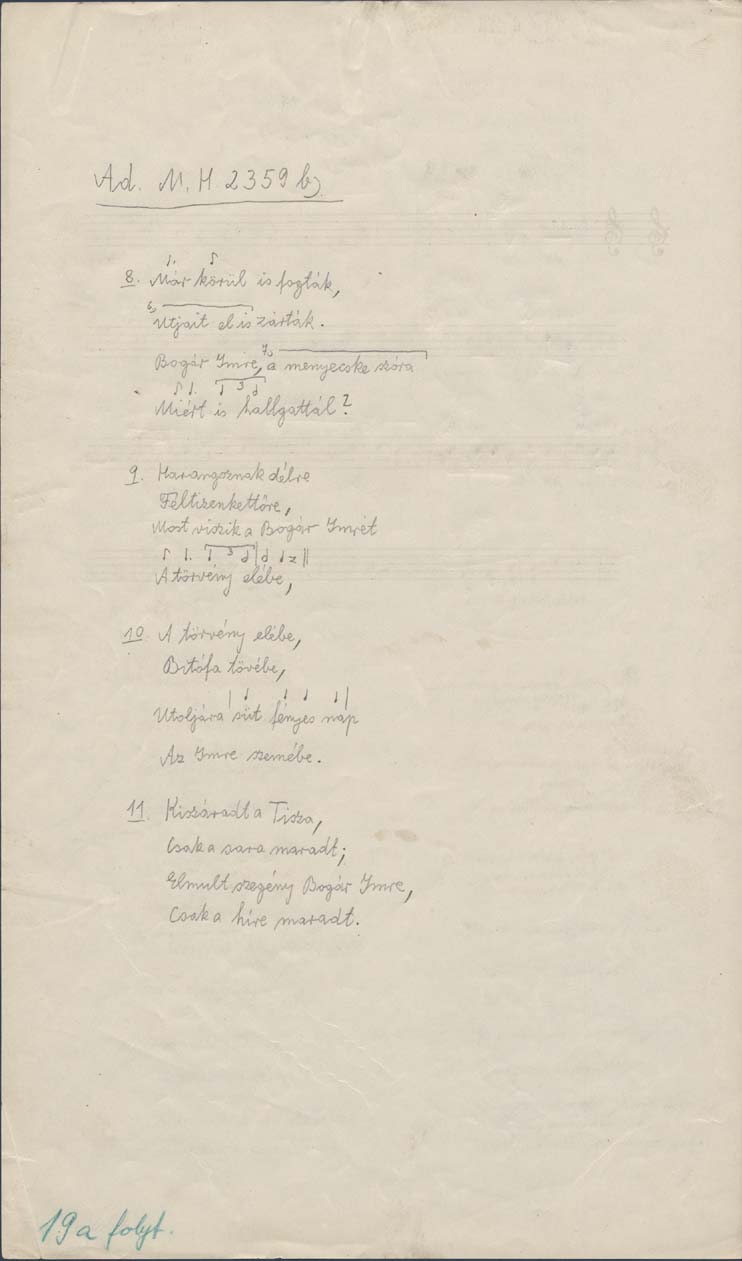 Ad. M. H. 2359 b)
8. Már körül is fogták,
6) Utjait el is zárták.
Bogár Imre, 7) a menyecske szóra
3
Miért is hallgattál?
9. Harangoznak délre
Féltizenkettőre,
Most viszik a Bogár Imrét
3
A törvény elébe,
10. A törvény elébe,
Bitófa tövébe,
Utoljára süt fényes nap
Az Imre szemébe.
11. Kiszáradt a Tisza,
Csak a sara maradt;
Elmult szegény Bogár Imre,
Csak a híre maradt.
19a folyt.